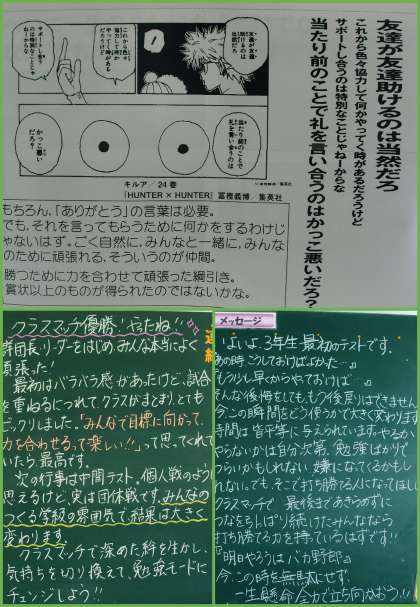 友達が友達助けるのは当然だろ
これから色々協力して何かやってく時があるだろうけど
サポートし合うのは特別なことじゃねーからな
当たり前のことで礼を言い合うのはかっこ悪いだろ?
友達が
友達
助けるのは
当然だろ
これから色々
協力して何か
やってく時が
あるだろうけど
サポートし合う
のは特別な
ことじゃねー
からな
当たり前の
ことで
礼を言い合う
のは
かっこ
悪い
だろ?
キルア/24巻
『HUNTER×HUNTER』冨樫義博/集英社
もちろん、「ありがとう」の言葉は必要。
でも、それを言ってもらうために何かをするわけじ
ゃないはず。ごく自然に、みんなと一緒に、みんな
のために頑張れる、そういうのが仲間。
勝つために力を合わせて頑張った綱引き。
賞状以上のものが得られたのではないかな。
クラスマッチ優勝!やったね!!
団長・リーダーをはじめ、みんな本当によく
頑張った!
最初はバラバラ感があったけど、試合
を重ねるにつれて、クラスがまとまり、とても
ビックリしました。「みんなで目標に向かって、
力を合わせるって楽しい!!」って思ってくれて
いたら、最高です。
次の行事は中間テスト。個人戦のように
思えるけど、実は団体戦です。みんなの
つくる学級の雰囲気で、結果は大きく
変わります。
クラスマッチで深めた絆を生かし、
気持ちを切り換えて、勉強モードに
チェンジしよう!!
メッセージ
いよいよ、3年生最初のテストです。
『あの時こうしておけばよかった…』
『もう少し早くからやっておけば…』
そんな後悔をしても、もう後戻りはできません。
今、この瞬間をどう使うかで大きく変わります。
時間は皆平等に与えられています。やるか、
やらないかは自分次第。勉強ばかりで
つらいかもしれない、嫌になってくるかもし
れない。でも、そこで打ち勝てる人になってほしい。
クラスマッチで、最後まであきらめずに
つなをひっぱり続けたみんななら
打ち勝てる力を持っているはずです。
『明日やろうはバカ野郎』
今、この時を無駄にせず、
一生懸命全力で立ち向かおう!!